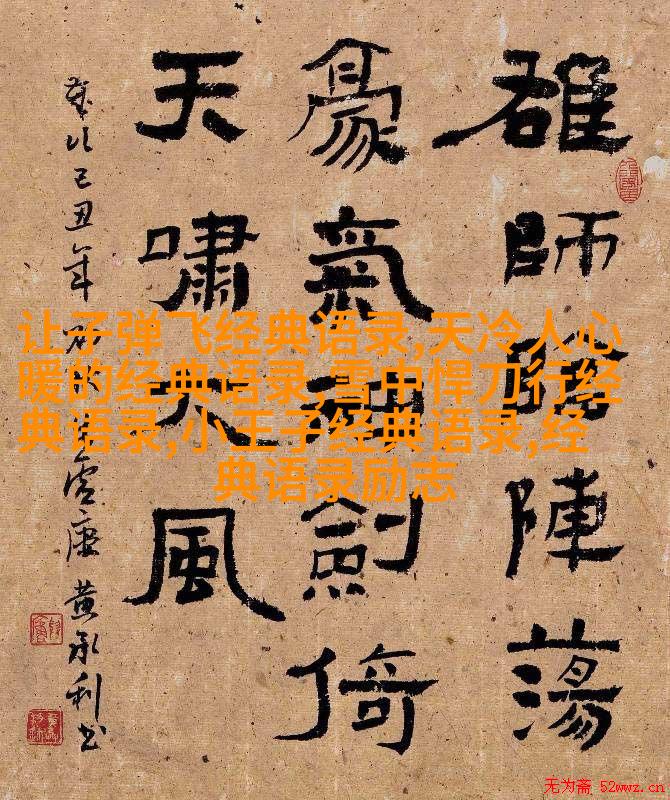 雄師陣蕩
豪氣劍倚
天嘯大風
歲次己丑年
黄承利书
让子弹飞经典语录,天冷人心
暖的经典语录,雪中悍刀行经
典语录,小王子经典语录,经
典语录励志
无为斋 52wwz.cn